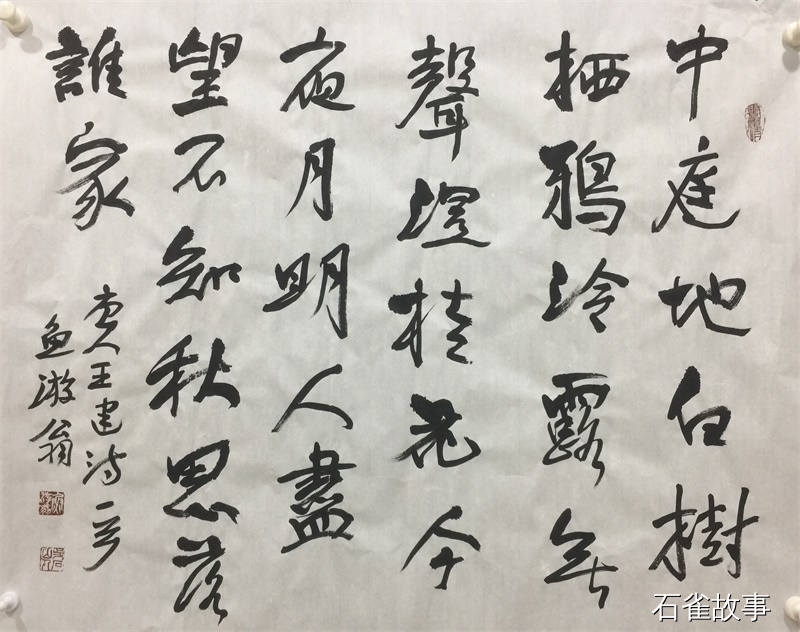 中庭地白樹
栖鴉冷露無
聲溼桂花今
夜月明人盡
望不知秋思落
誰家
唐人王建詩一首
魚游翁
石雀故事